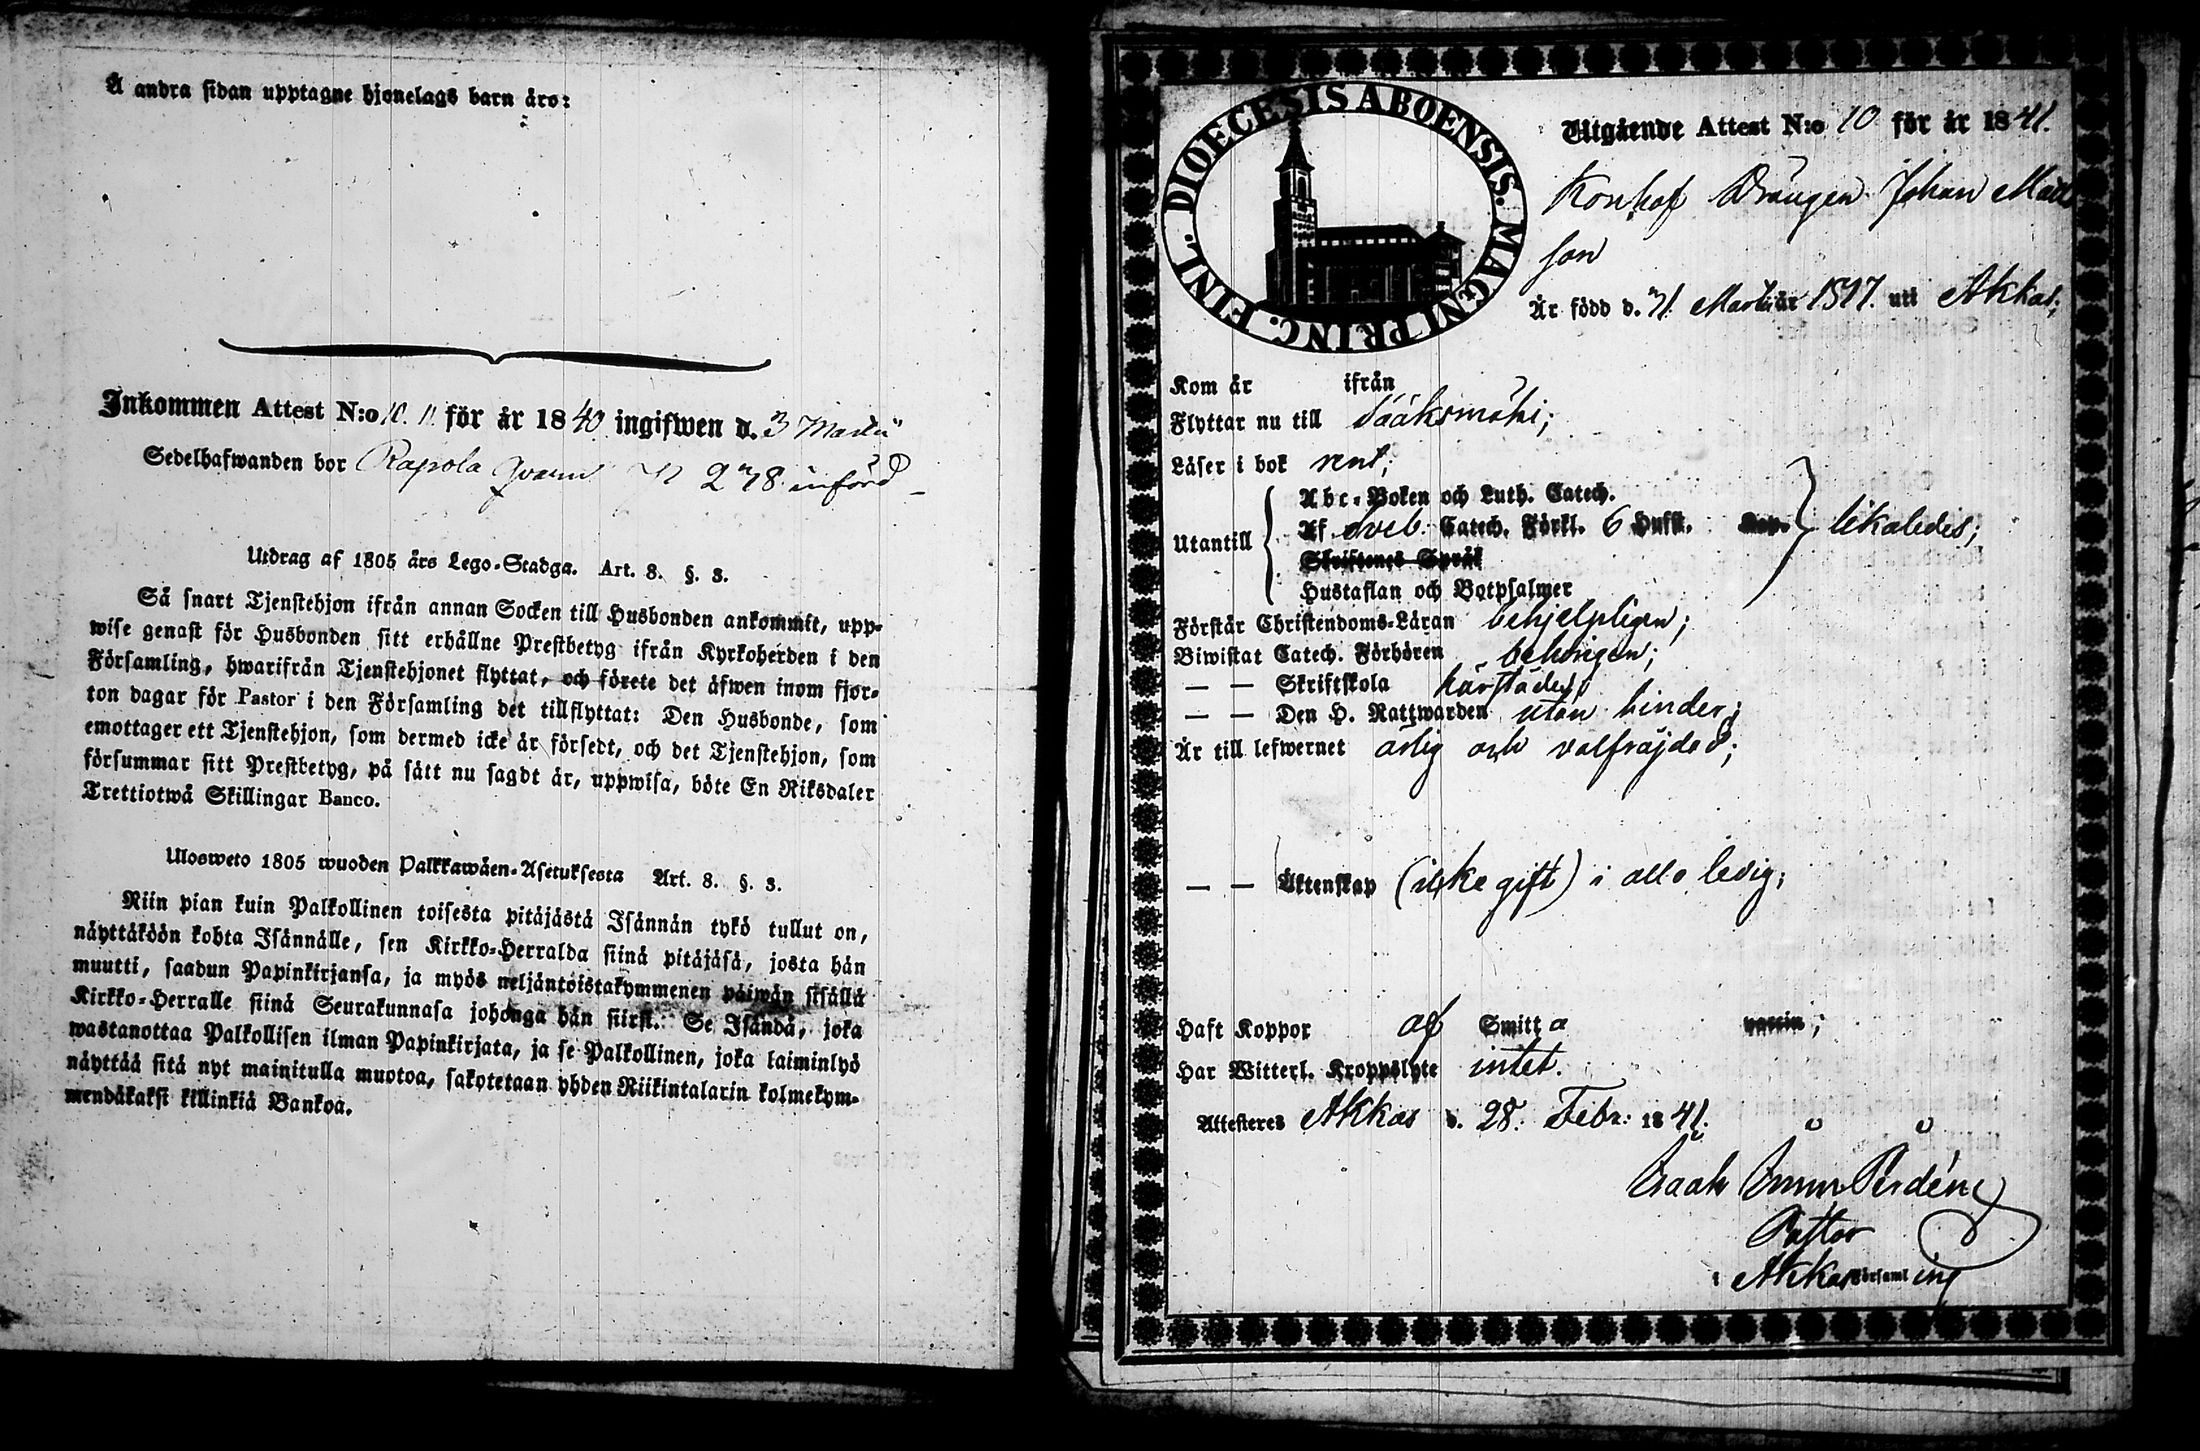 Å andra sidan upptagne hjonelags barn äro:
Inkommen Attest N:o 10. 11. för år 1840 ingifwen d. 3 Martii
Sedelhafwanden bor Rapola qvarn N 278 införd
Utdrag af 1805 års Lego-Stadga. Art. 8. §. 3.
Så snart Tjenstehjon ifrån annan Socken till Husbonden ankommit, upp-
wise genast för Husbonden sitt erhållne Prestbetyg ifrån Kyrkoherden i den
Församling, hwarifrån Tjenstehjonet flyttat, och förete det äfwen inom fjor-
ton dagar för Pastor i den Församling det tillflyttat: Den Husbonde, som
emottager ett Tjenstehjon, som dermed icke är försedt, och det Tjenstehjon, som
försummar sitt Prestbetyg, på sätt nu sagdt är, uppwisa, böte En Riksdaler
Trettiotwå Skillingar Banco.
Ulosweto 1805 wuoden Palkkawäen-Asetuksesta Art. 8. §. 3.
Niin pian kuin Palkollinen toisesta pitäjästä Isännän tykö tullut on,
näyttäköön kohta Isännälle, sen Kirkko-Herralda siinä pitäjäsä, josta hän
muutti, saadun Papinkirjansa, ja myös neljäntoistakymmenen päiwän sisällä
Kirkko-Herralle siinä Seurakunnasa johonga hän siirsi. Se Isändä, joka
wastanottaa Palkollisen ilman Papinkirjata, ja se Palkollinen, joka laiminlyö
näyttää sitä nyt mainitulla muotoa, sakotetaan yhden Riikintalarin kolmekym-
mendäkaksi killinkiä Bankoa.
FINL. DIOECESIS ABOENSIS. MAGNI PRINC.
Utgående Attest N:o 10 för år 1841.
Drängen Johan Matt
son
Är född d. 71 Martii år 1817. uti Akkas;
Kom år ifrån
Flyttar nu till Sääksmäki;
Läser i bok rent;
Abc-Boken och Luth. Catech.
Utantill Af Sveb. Catech. Förkl. 6 Hufst. likaledes;
Skriftenes Språk
Hustaflan och Botpsalmer
Förstår Christendoms-Läran behjelpligen;
Biwistat Catech. Förhören behörigen;
— — Skriftskola härstädes;
— — Den H. Nattwarden utan hinder;
Är till lefwernet ärlig och välfräjdad;
— — Äktenskap (icke gift) i allo ledig;
Haft Koppor af Smitta vaccin;
Har Witterl. Kroppslyte intet.
Attesteres Akkas d. 28. Febr: 1841.
Isaak Imm Perdén
Pastor
i Akkas Församling